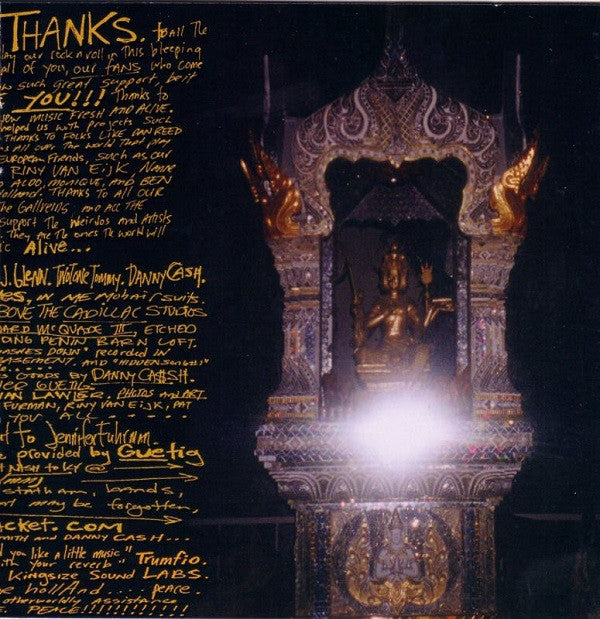 THANKS. to All The
our rock n roll in This bleeping
all of you, our FANS who come
such great Support, be it
YOU!!! Thanks to
MUSIC FRESH AND ALIVE.
helped us with projects Such
THANKS TO FOLKS LIKE DAN REED
All over the World That play
EUROPEAN Friends, Such as our
RINY VAN EiJK, Nanne
ALDO, MONIQUE, AND BEN
Holland. THANKS TO All OUR
The Gallreins, and All THE
Support The Weirdos and Artists
They are The ones The World will
Alive...
J. Glenn. TwoTone Tommy. DANNY CASH.
IN ME Mohair Suits.
ABOVE THE CADILLAC STUDIOS
McQUADE III, ETCHED
BARN LOFT.
DOWN" recorded in
BASEMENT. AND
GOODS BY DANNY CA$H.
GUETIG.
LAWLER. PHOTOS AND ART
FURMAN, RINY VAN EiJK, PAT
YOU
to Jennifer Fuhrman.
provided by Guetig
NASH to KY @
bands,
may be forgotten,
cket.com
SMITH AND DANNY CASH...
you like a little music"
your reverb" Trumfio.
KINGSIZE SOUND LABS.
hollAnd.... peace.
otherworldly assistance
PEACE!!!!!!!!!!!